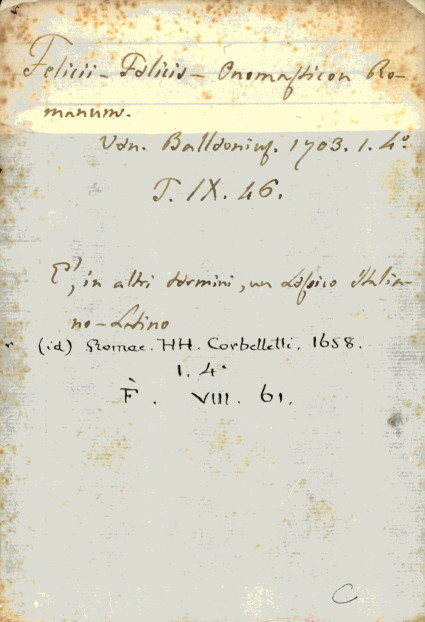 Felicii - Felicis - Onomasticon Ro-
manum.
Ven. Balleonius. 1703. 1. 4º
T. IX. 46.
E', in altri termini, un Lessico Italia-
no-Latino
(id) Romae. HH. Corbelletti. 1658.
1. 4º
F. VIII. 61.
C